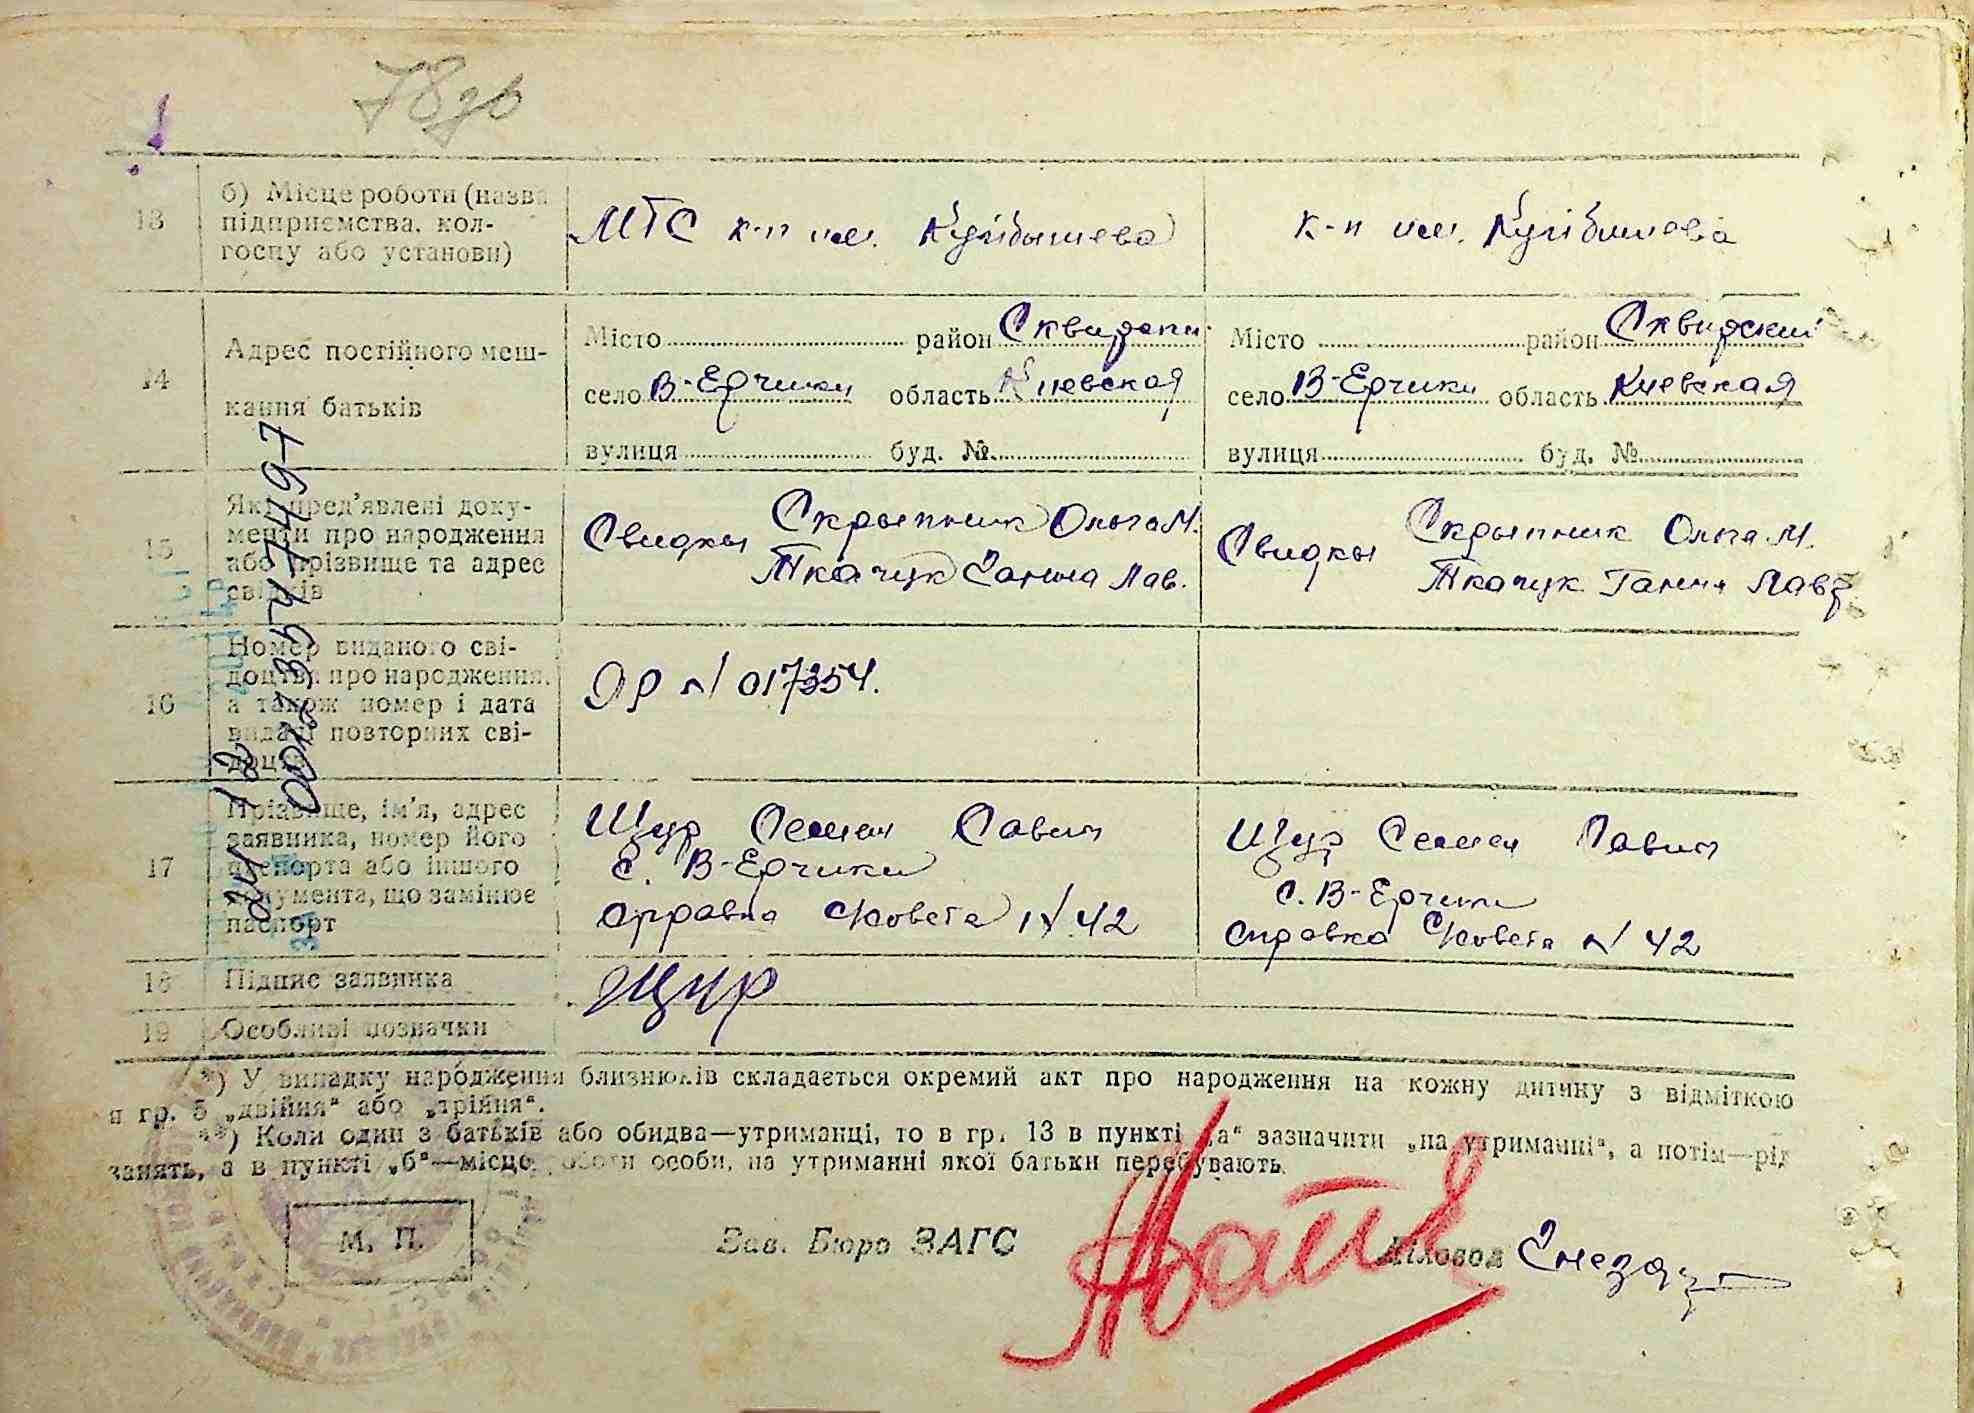 78зв
13
б) Місце роботи (назва
підприємства, кол-
госпу або установи)
МТС к-п им. Куйбышева
к-п им. Куйбишева
14
Адрес постійного меш-
кання батьків
Місто район Сквирский
село В-Ерчики область Киевская
вулиця буд. №
Місто район Сквирский
село В-Ерчики область Киевская
вулиця буд. №
15
Які пред'явлені доку-
менти про народження
або прізвище та адрес
свідків
Свидкы Скрыпник Ольга М.
Ткачук Ганна Лав.
Свидкы Скрыпник Ольга М.
Ткачук Ганна Лавр
16
Номер виданого сві-
доцтва про народження,
а також номер і дата
видачі повторних сві-
доцтв
ЯР N 017354.
17
Прізвище, ім'я, адрес
заявника, номер його
паспорта або іншого
документа, що замінює
паспорт
Щур Семен Савич
с. В-Ерчики
справка с/совета N 42
Щур Семен Савич
с. В-Ерчики
справка с/совета N 42
18
Підпис заявника
Щур
19
Особливі позначки
00126354747497
*) У випадку народження близнюків складається окремий акт про народження на кожну дитину з відміткою
в гр. 5 „двійня“ або „трійня“.
**) Коли один з батьків або обидва—утриманці, то в гр. 13 в пункті „а“ зазначити „на утриманні“, а потім—рід
занять, а в пункті „б“—місце роботи особи, на утриманні якої батьки перебувають.
М. П.
Зав. Бюро ЗАГС
Діловод